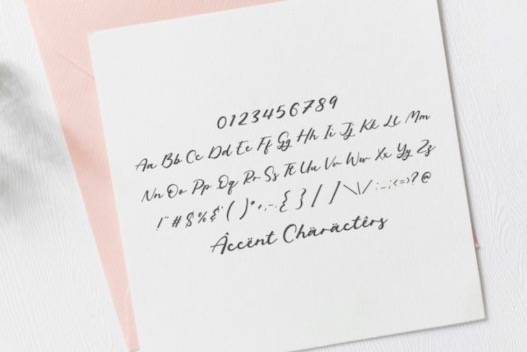 0123456789
Aa Bb Cc Dd Ee Ff Gg Hh Ii Jj Kk Ll Mm
Nn Oo Pp Qq Rr Ss Tt Uu Vv Ww Xx Yy Zz
Àccënt Chäräctêrs